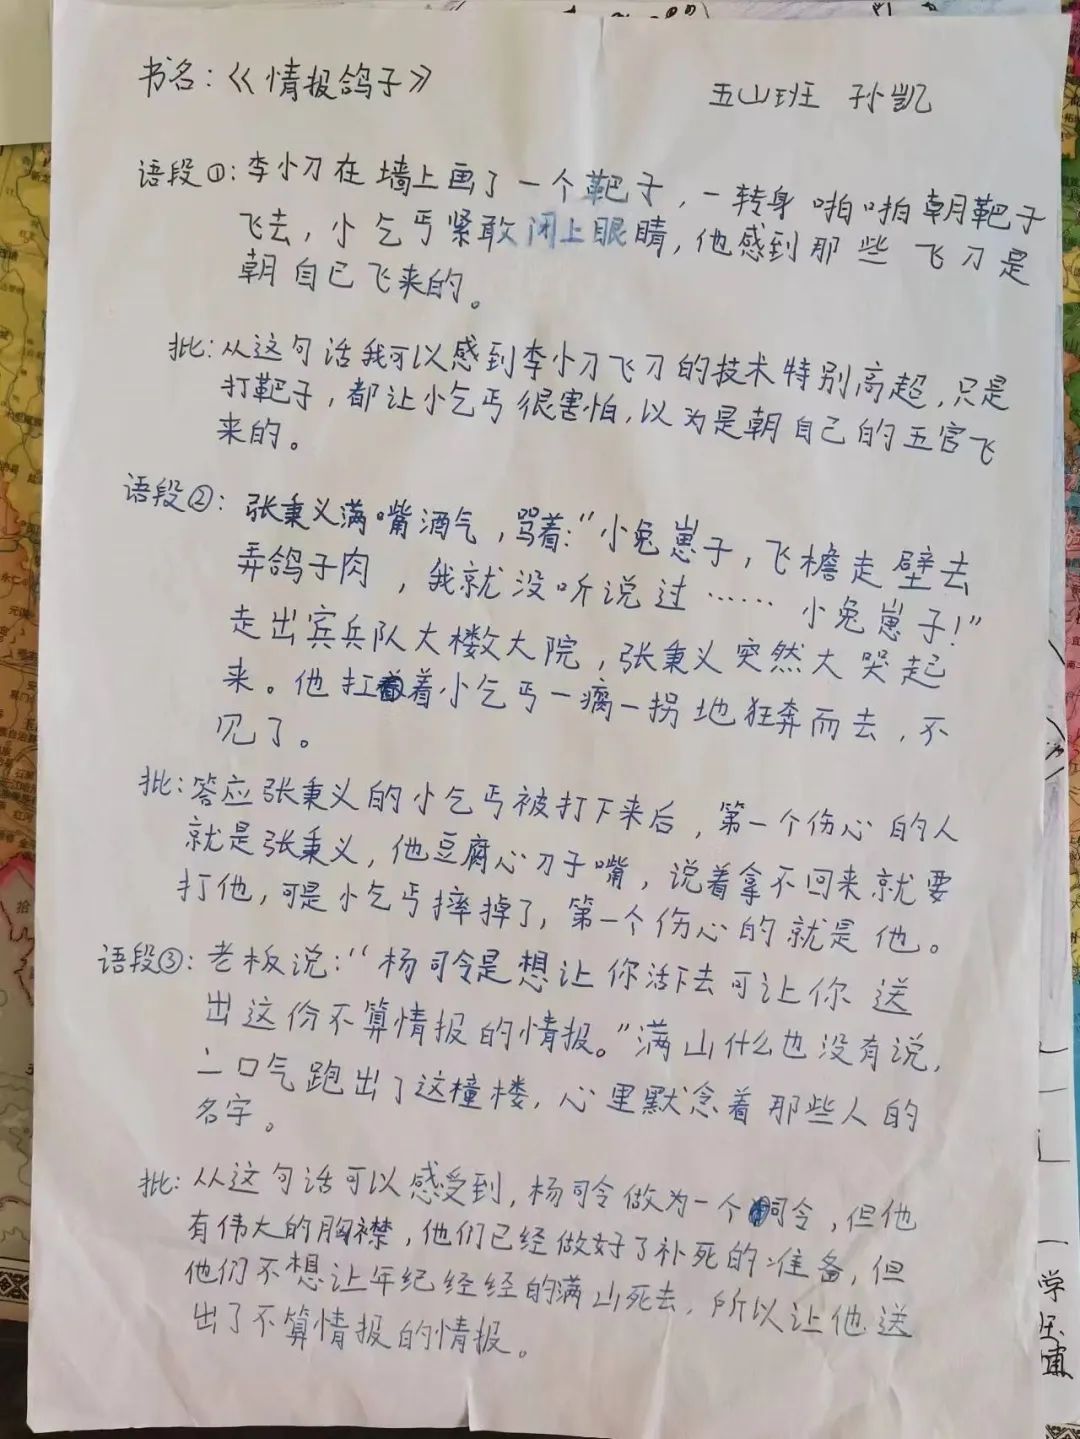 书名:《情报鸽子》
五山班 孙凯
语段①:李小刀在墙上画了一个靶子,一转身啪啪朝靶子
飞去,小乞丐紧敢闭上眼睛,他感到那些飞刀是
朝自已飞来的。
批:从这句话我可以感到李小刀飞刀的技术特别高超,只是
打靶子,都让小乞丐很害怕,以为是朝自己的五官飞
来的。
语段②:张秉义满嘴酒气,骂着:“小兔崽子,飞檐走壁去
弄鸽子肉,我就没听说过……小兔崽子!”
走出宾兵队大楼数大院,张秉义突然大哭起
来。他扛着小乞丐一瘸一拐地狂奔而去,不
见了。
批:答应张秉义的小乞丐被打下来后,第一个伤心的人
就是张秉义,他豆腐心刀子嘴,说着拿不回来就要
打他,可是小乞丐摔掉了,第一个伤心的就是他。
语段③:老板说:“杨司令是想让你活下去可让你送
出这份不算情报的情报。”满山什么也没有说,
一口气跑出了这橦楼,心里默念着那些人的
名字。
批:从这句话可以感受到,杨司令做为一个司令,但他
有伟大的胸襟,他们已经做好了补死的准备,但
他们不想让年纪经经的满山死去,所以让他送
出了不算情报的情报。
学